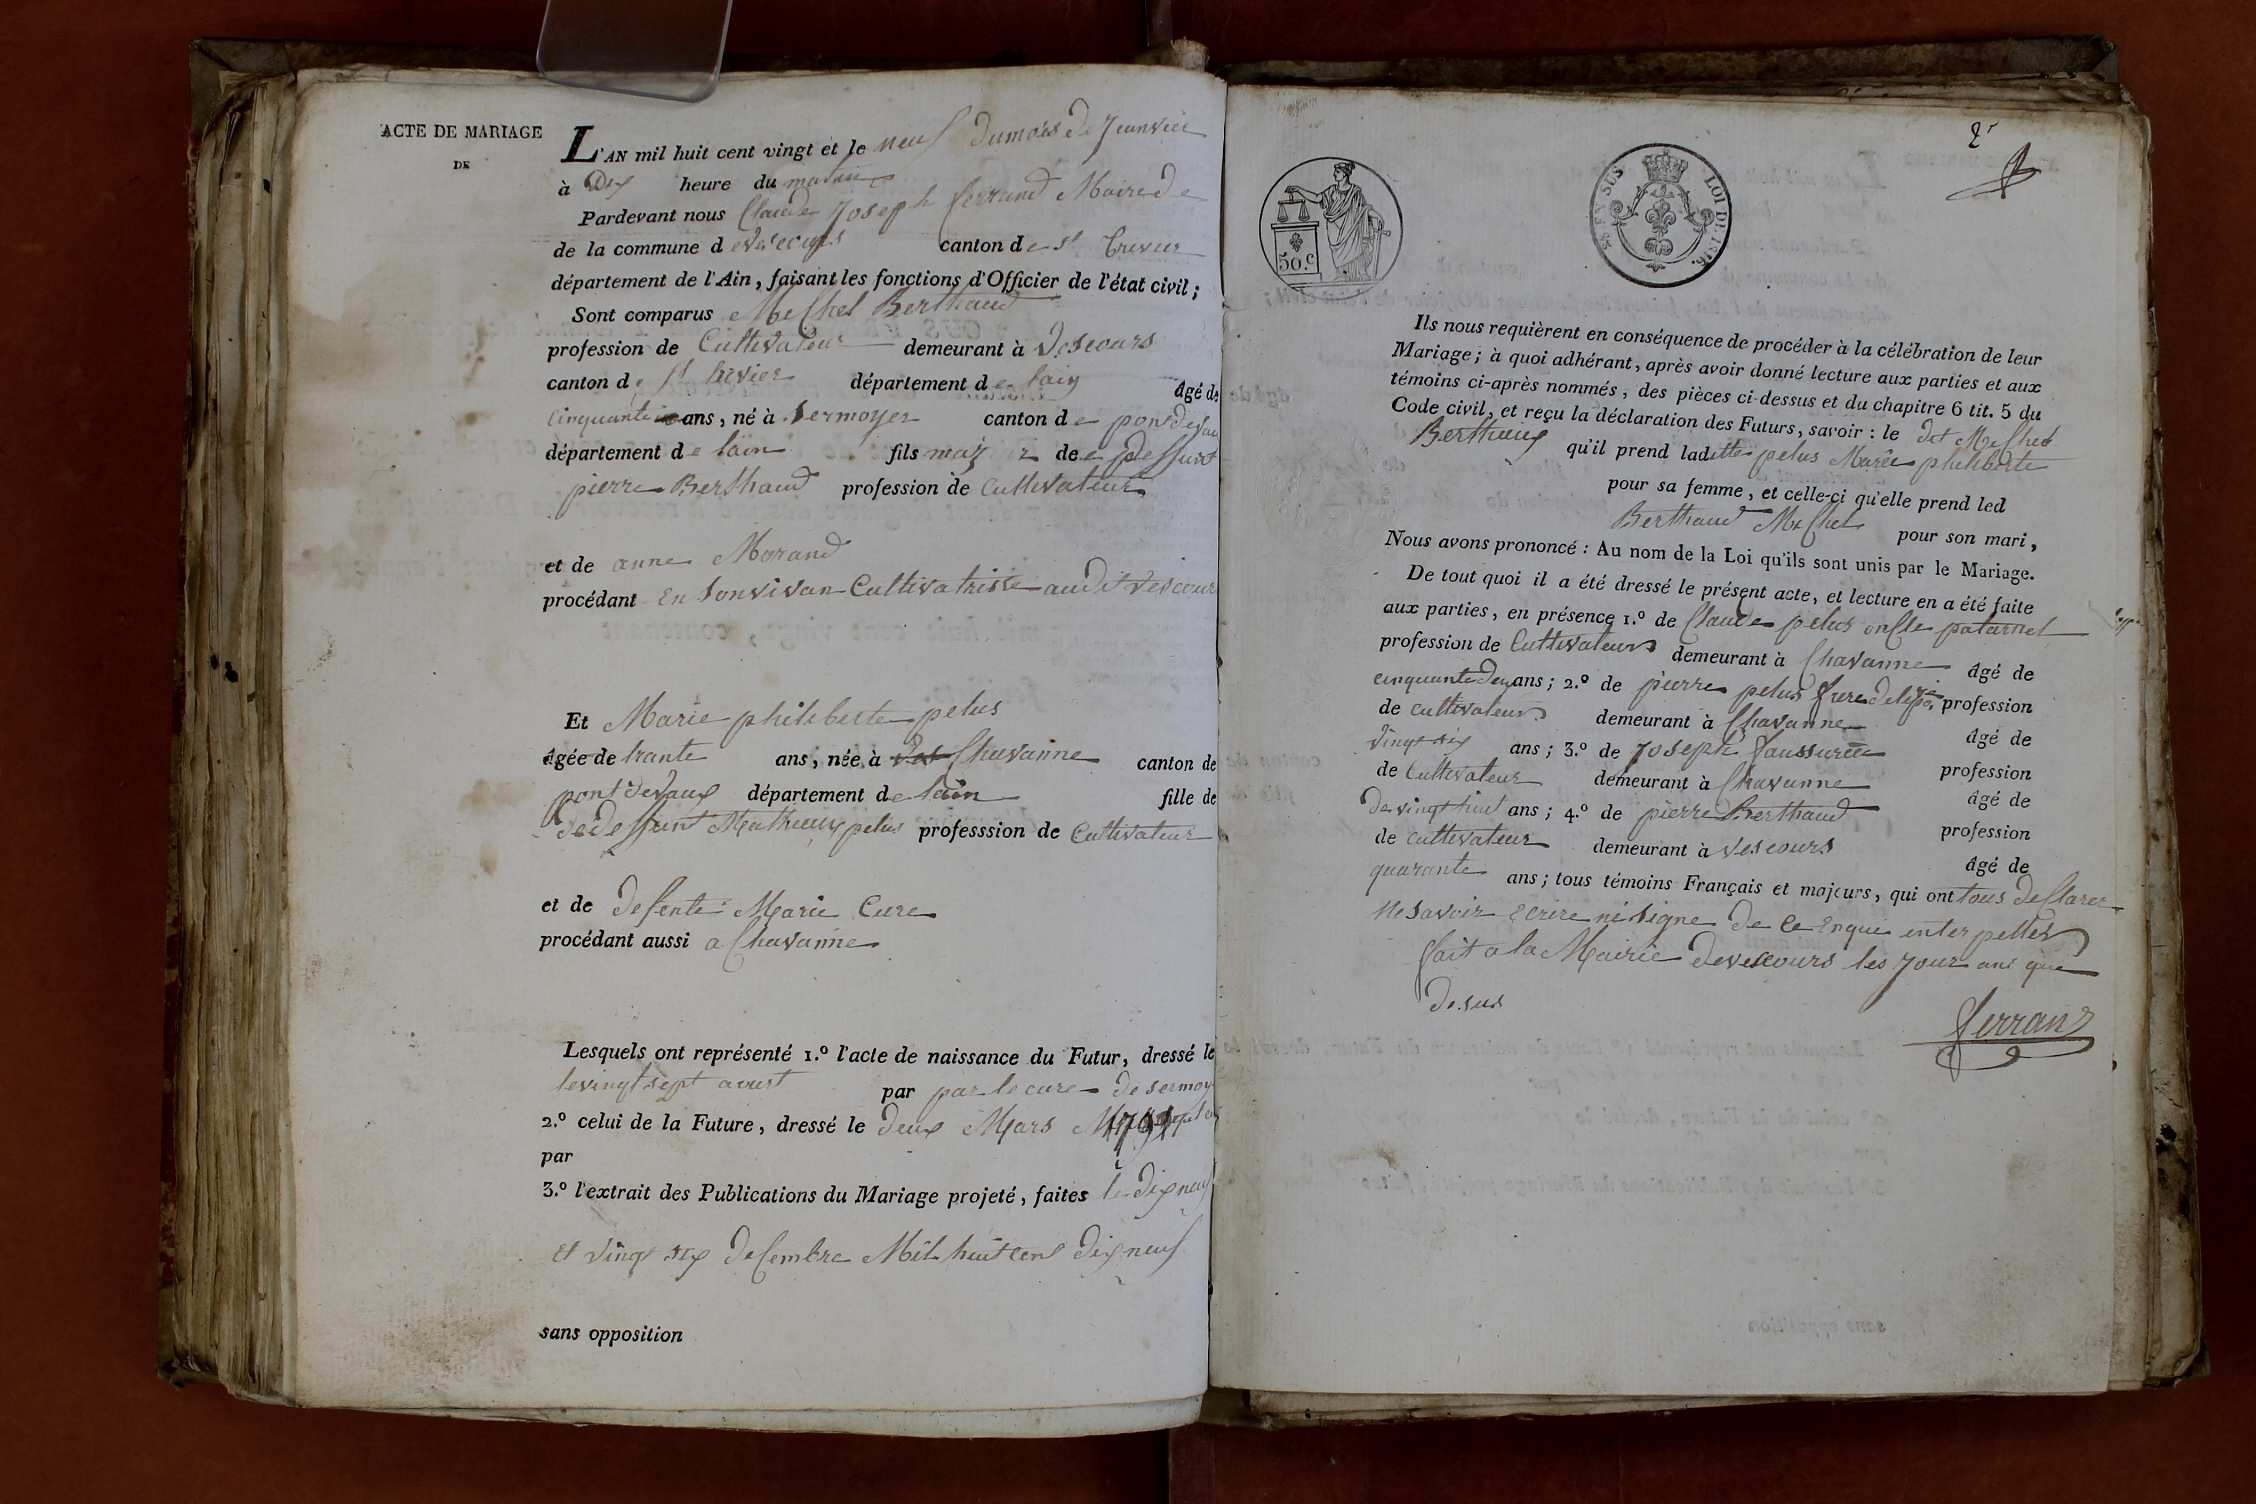 ACTE DE MARIAGE
DE
L'AN mil huit cent vingt et le neuf du mois de Jeanvier
à Dix heure du matin
Pardevant nous Claude Joseph ferrand Maire de
de la commune de vescours canton de st trivier
département de l'Ain, faisant les fonctions d'Officier de l'état civil;
Sont comparus Michel Berthaud
profession de Cultivateur demeurant à vescours
canton de st trivier département de lain âgé de
Cinquante ans, né à Sermoyer canton de pontdevau
département de lain fils majeur de deffunt
pierre Berthaud profession de Cultivateur
et de anne Morand
procédant En Sonvivan Cultivatrisse audit vescour
Et Marie philiberte pelus
âgée de trante ans, née à Chavanne canton de
pontdevaux département de lain fille de
de deffunt Mathieux pelus professsion de Cultivateur
et de defente Marie Cure
procédant aussi a Chavanne
Lesquels ont représenté 1.º l'acte de naissance du Futur, dressé le
le vingt sept avust par par le cure de sermoy
2.º celui de la Future, dressé le deux Mars
par
3.º l'extrait des Publications du Mariage projeté, faites le dix neuf
et vingt six desembre Mil huit cent dix neuf
sans opposition
2e
50.c
EN SUS
LOI DE 1816.
Ils nous requièrent en conséquence de procéder à la célébration de leur
Mariage; à quoi adhérant, après avoir donné lecture aux parties et aux
témoins ci-après nommés, des pièces ci-dessus et du chapitre 6 tit. 5 du
Code civil, et reçu la déclaration des Futurs, savoir: le dit Michel
Berthaux qu'il prend laditte pelus Marie philiberte
pour sa femme, et celle-ci qu'elle prend led
Berthaud Michel pour son mari,
Nous avons prononcé: Au nom de la Loi qu'ils sont unis par le Mariage.
De tout quoi il a été dressé le présent acte, et lecture en a été faite
aux parties, en présence 1.º de Claude pelus oncle paternel
profession de Cultivateur demeurant à Chavanne âgé de
cinquante deux ans; 2.º de pierre pelus frere profession
de cultivateur demeurant à Chavanne âgé de
vingt six ans; 3.º de Joseph profession
de Cultivateur demeurant à Chavanne âgé de
de vingt huit ans; 4.º de pierre Berthaud profession
de cultivateur demeurant à vescours âgé de
quarante ans; tous témoins Français et majeurs, qui ont tous desclarer
ne savoir Ecrire ni signe de ce enquis interpeller
fait a la Mairie de vescours les Jour ans que
desus
ferrand